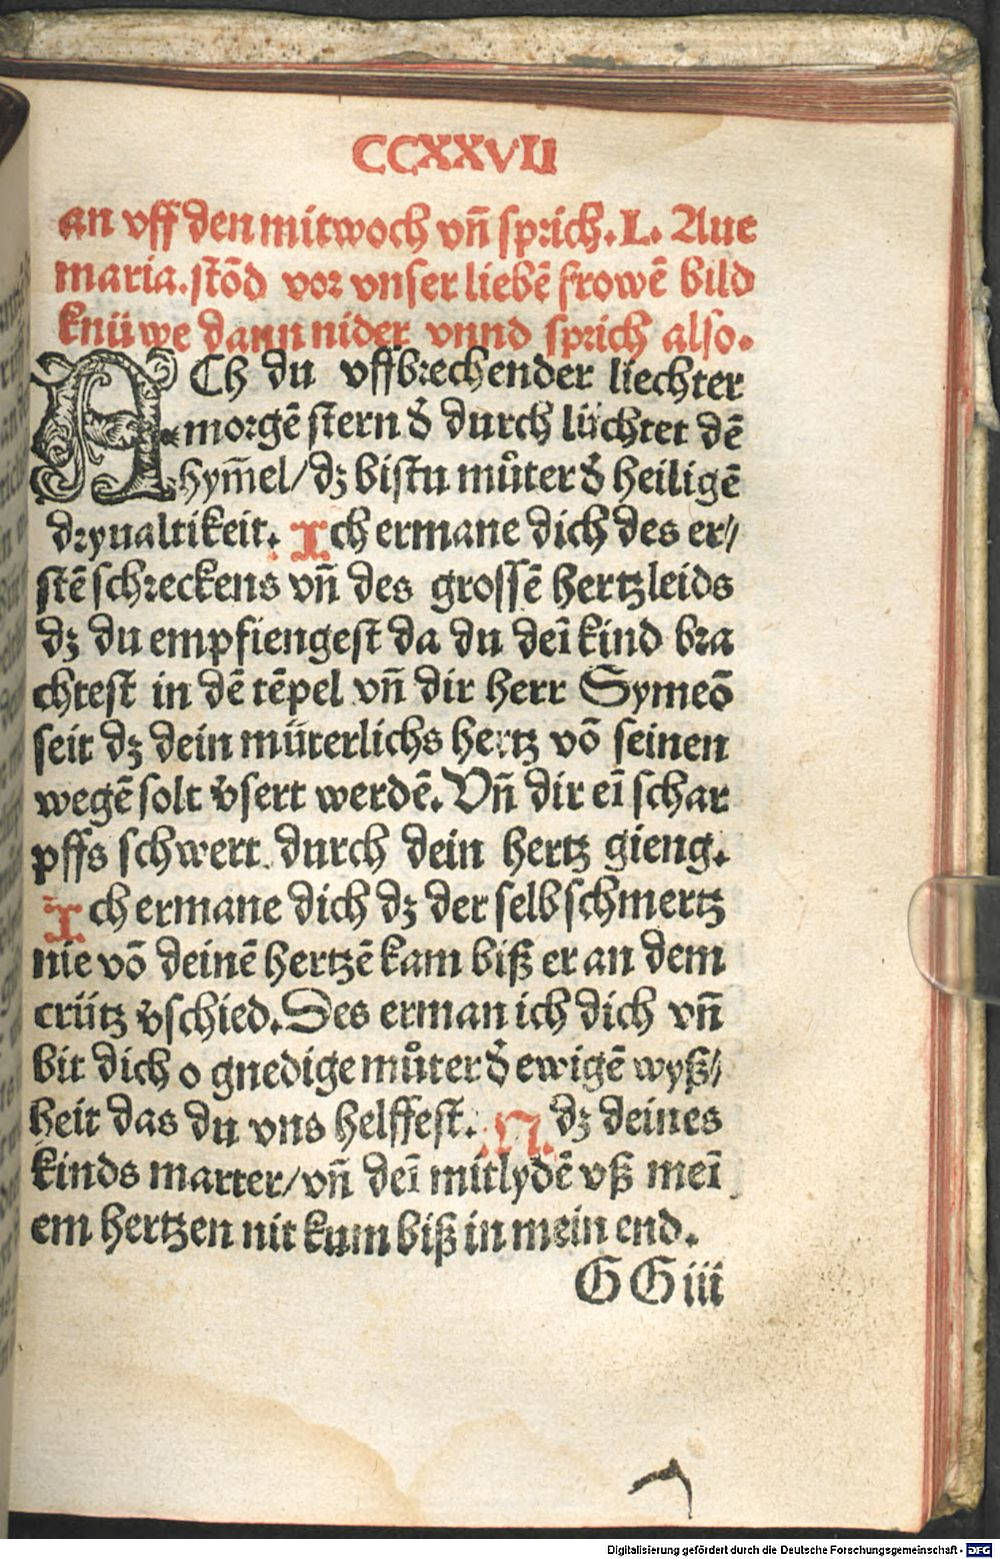 CCXXVII
an vff den mitwoch vñ sprich. L. Aue
maria. stōd vor vnser liebē frowē bild
knüwe dann nider vnnd sprich also.
ACh du vffbrechender liechter
morgē stern d̕ durch lüchtet dē
hym̄el/ dʒ bistu můter d̕ heiligē
dryualtikeit. Ich ermane dich des er/
stē schreckens vñ des grossē hertzleids
dʒ du empfiengest da du deī kind bra
chtest in dē tēpel vñ dir herr Symeō
seit dʒ dein müterlichs hertz vō seinen
wegē solt v̕sert werdē. Vñ dir eī schar
pffs schwert durch dein hertz gieng.
Ich ermane dich dʒ der selb schmertz
nie vō deinē hertzē kam biß er an dem
crütz v̕schied. Des erman ich dich vñ
bit dich o gnedige můter d̕ ewigē wyß/
heit das du vns helffest. .N. dʒ deines
kinds marter/ vñ deī mitlydē vß meī
em hertzen nit kum biß in mein end.
GG iii
Digitalisierung gefördert durch die Deutsche Forschungsgemeinschaft - DFG